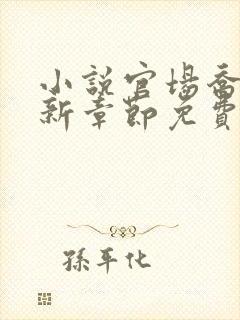 小説官場喬
新章節免費
孫平化